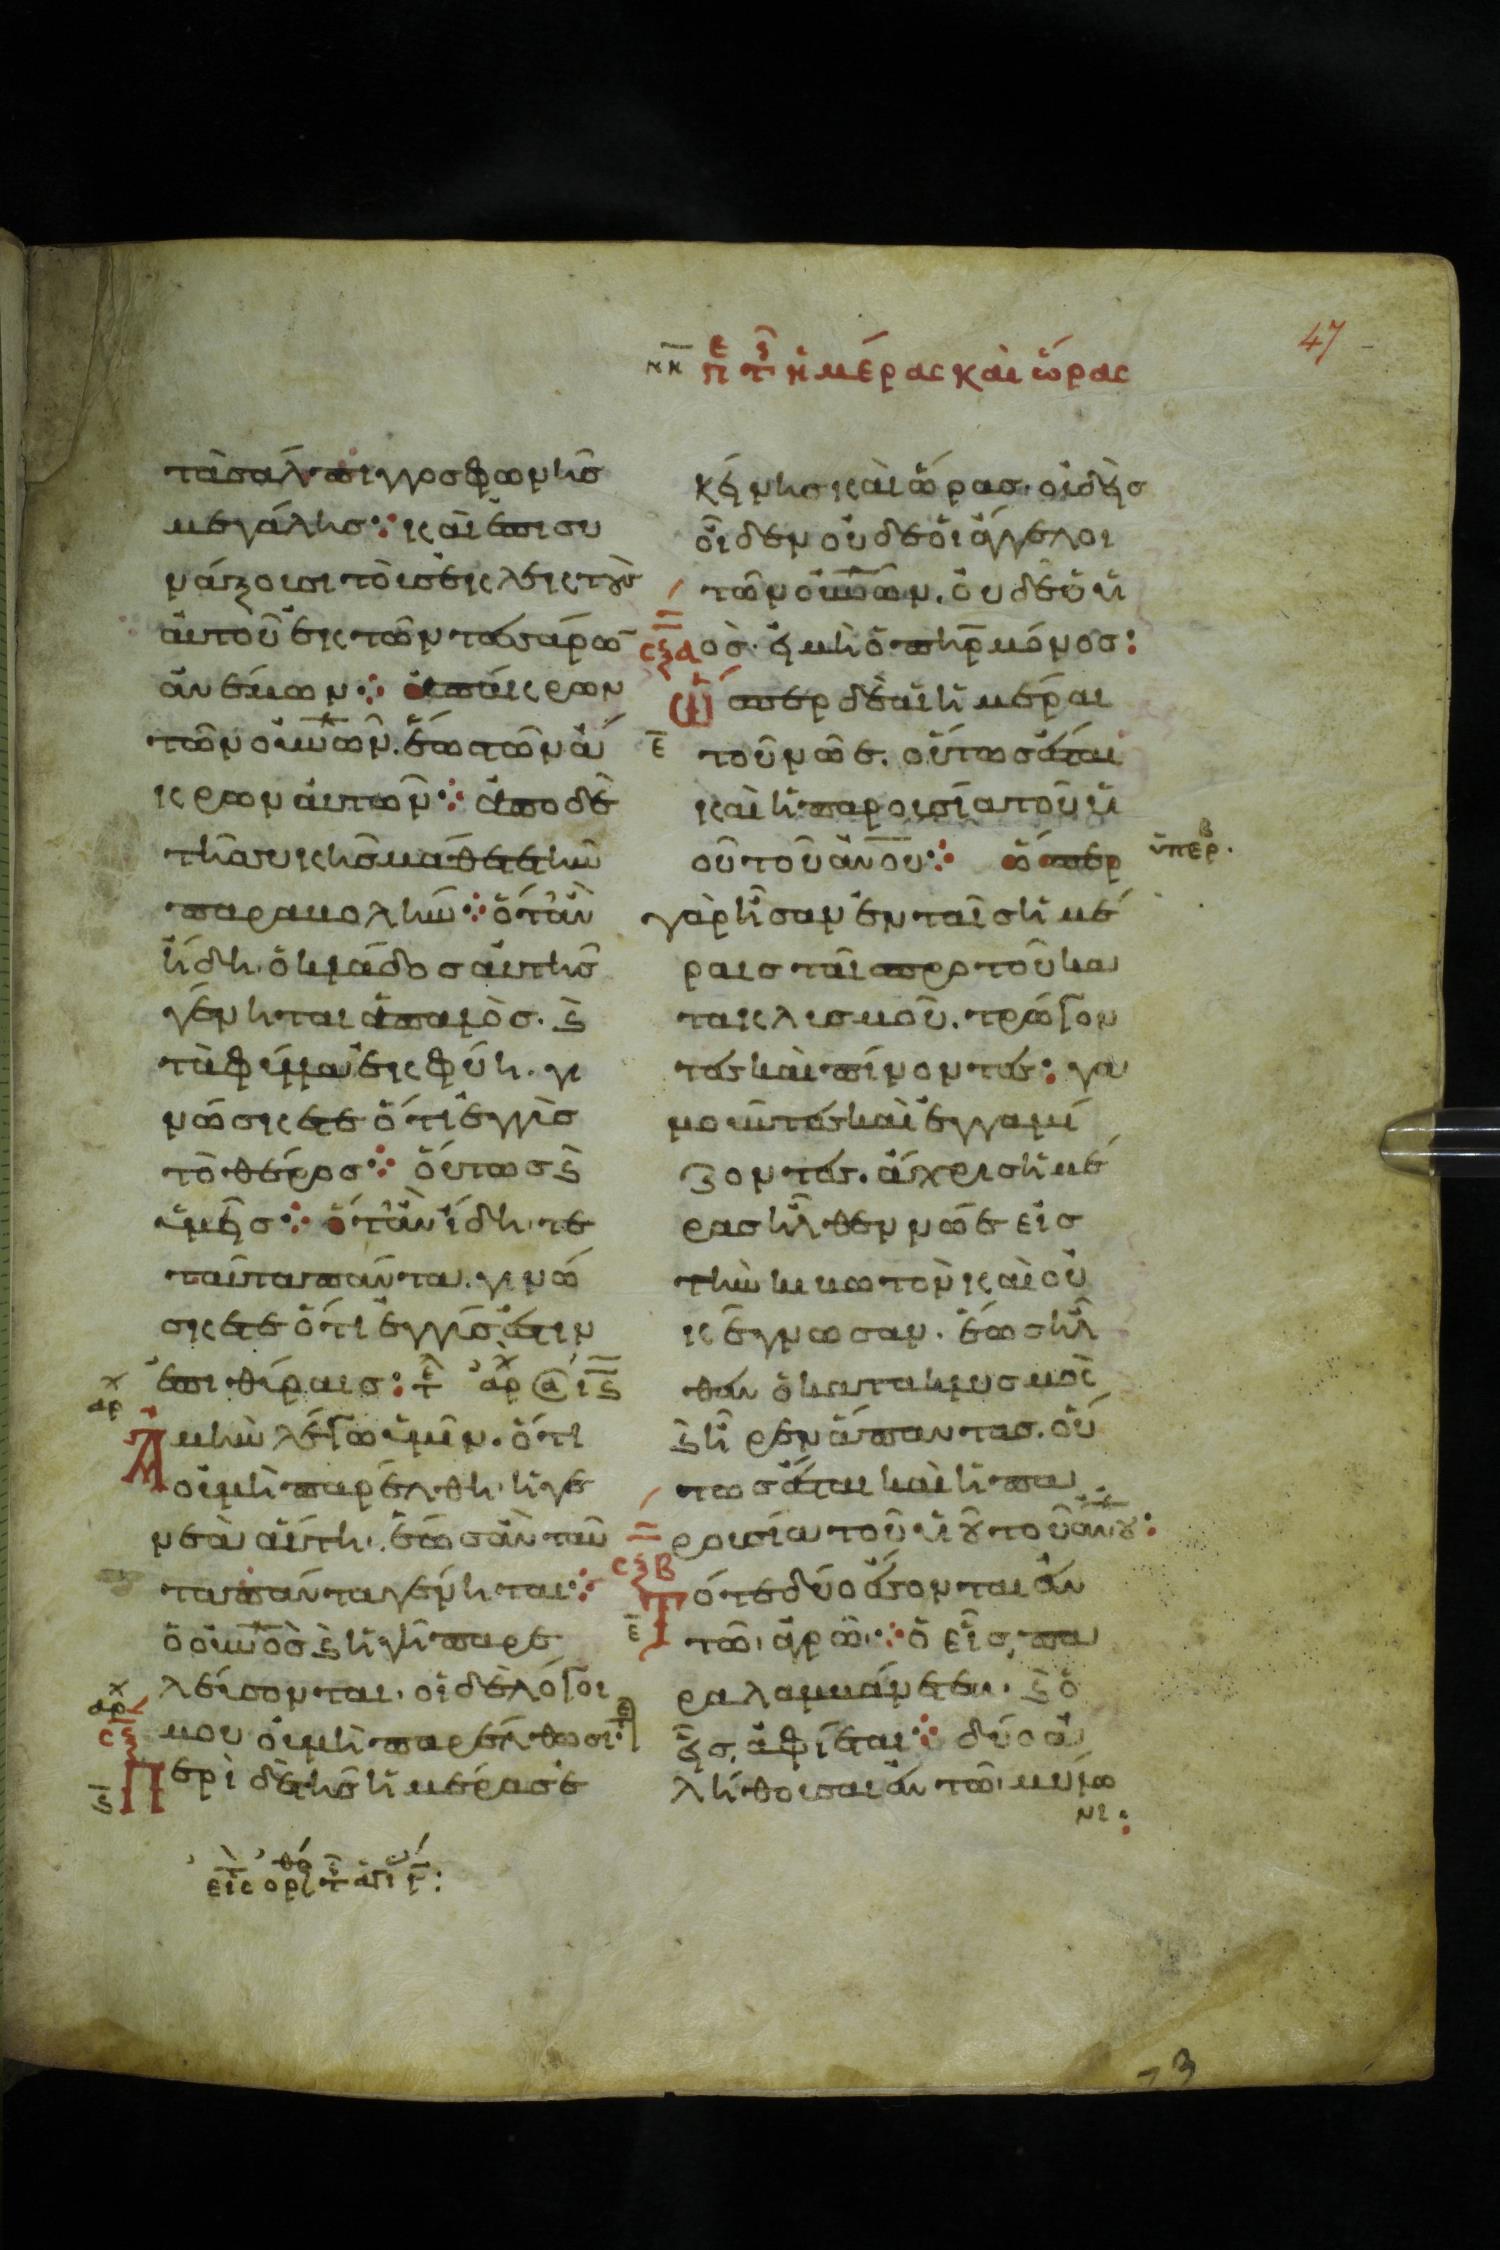 47
νη πε τς ἡμέρας καὶ ὥρας
τὰ σάλπιγγος φωνῆς
μεγάλης· καὶ ἐπισυ
νάξουσι τοὺς ἐκλεκτοὺς
αὐτοῦ ἐκ τῶν τεσσάρω
ἀνέμων· ἀπ ἄκρων
τῶν οὐνῶν. ἕως τῶν ἄ
κρων αὐτῶν· ἀπο δὲ
τῆς συκῆς μάθετε τὴν
παραβολήν· ὅταν
ἤδη ὁ κλάδος αὐτῆς
γένηται ἁπαλὸς. ϗ
τὰ φύλλα ἐκφύη. γι
νώσκετε ὅτι ἐγγὺς
τὸ θέρος· οὕτως ϗ
ὑμεῖς· ὅταν ἴδητε
ταῦτα πάντα. γινώ
σκετε ὅτι ἐγγύς ἐστιν
ἐπι θύραις: τε αρχ
αρχ
Ἀμὴν λέγω ὑμῖν. ὅτι
οὐ μὴ παρέλθη ἡ γε
νεὰ αὕτη. ἕως ἂν ταῦ
τα πάντα γένηται·
ὁ οὐνὸς ϗ ἡ γῆ παρε
λεύσονται. οἱ δὲ λόγοι
αρχ
μου οὐ μὴ παρέλθωσι·
σξ
Περὶ δὲ τῆς ἡμέρας ἐ
ς
κείνης καὶ ὥρας. οὐδεὶς
οἶδεν οὐδε οἱ ἄγγελοι
τῶν οὐνῶν. οὐδὲ ὁ ὑι
ος. εἰ μὴ ὁ πηρ μόνος:
σξα
Ὥσπερ δὲ αἱ ἡμέραι
ε
τοῦ νῶε. οὕτως ἔσται
καὶ ἡ παρουσία τοῦ ὑι
οῦ τοῦ ἀνου· ὥσπερ
ὑπερβ.
γὰρ ἦσαν ἐν ταῖς ἡμέ
ραις ταῖς προ τοῦ κα
τακλυσμοῦ. τρώγον
τες καὶ πίνοντες: γα
μοῦντες καὶ ἐγγαμί
ζοντες. ἄχρις ἡμέ
ρας ἦλθεν νῶε εἰς
τὴν κιβωτὸν καὶ οὐ
κ ἔγνωσαν. ἕως ἦλ
θεν ὁ κατακλυσμὸς
ϗ ἦρεν ἅπαντας. οὕ
τως ἔσται καὶ ἡ πα
ρουσία τοῦ ὑιοῦ τοῦ ἀνου:
σξβ
Τότε δύο ἔσονται ἐν
ε
τῶ ἀγρῶ· ὁ εἷς πα
ραλαμβάνεται. ϗ ὁ
εἷς ἀφίεται· δύο ἀ
λήθουσαι ἐν τῶ μύλω
νι:
73